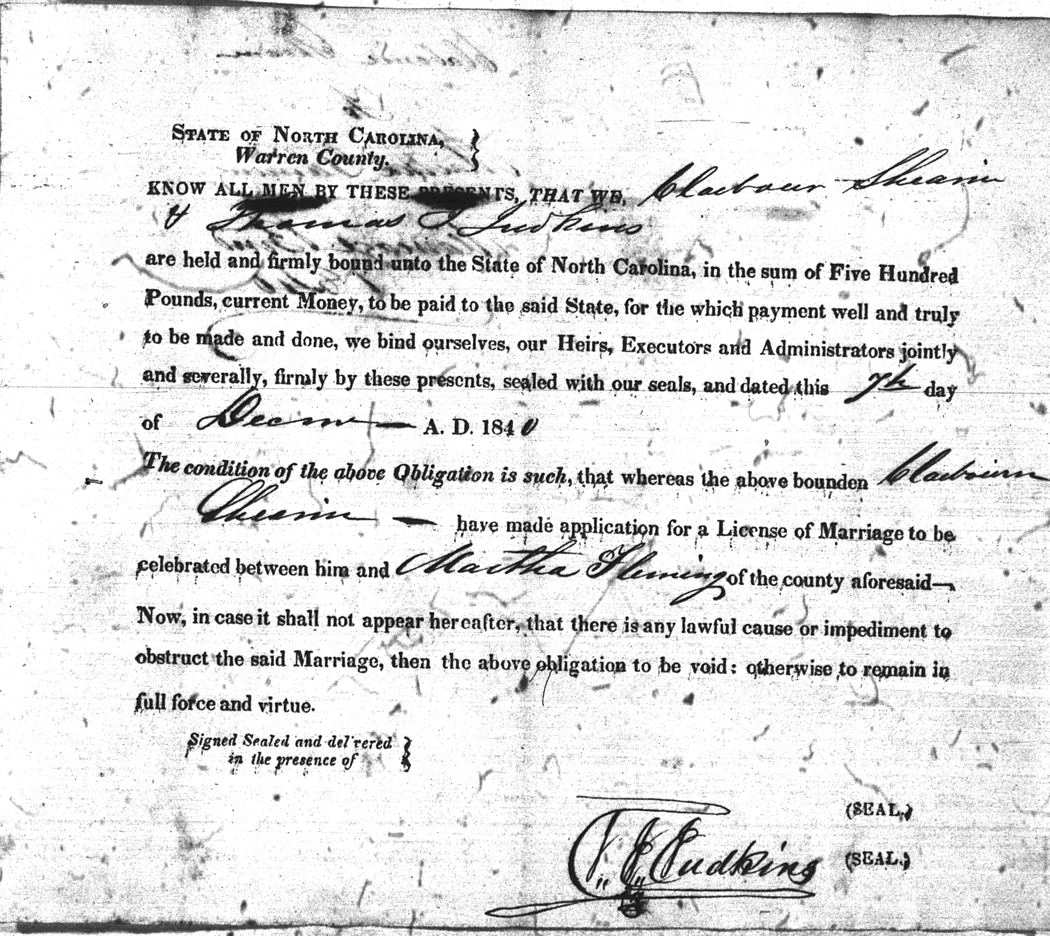 STATE OF NORTH CAROLINA,
Warren County.
KNOW ALL MEN BY THESE PRESENTS, THAT WE, Claibour Shearin
& Thomas J. Judkins
are held and firmly bound unto the State of North Carolina, in the sum of Five Hundred
Pounds, current Money, to be paid to the said State, for the which payment well and truly
to be made and done, we bind ourselves, our Heirs, Executors and Administrators jointly
and severally, firmly by these presents, sealed with our seals, and dated this 7th day
of Decmr — A. D. 1840
The condition of the above Obligation is such, that whereas the above bounden Claibourn
Shearin — have made application for a License of Marriage to be
celebrated between him and Martha Fleming of the county aforesaid—
Now, in case it shall not appear hereafter, that there is any lawful cause or impediment to
obstruct the said Marriage, then the above obligation to be void: otherwise to remain in
full force and virtue.
Signed Sealed and del'vered
in the presence of
(SEAL.)
T. J. Judkins (SEAL.)